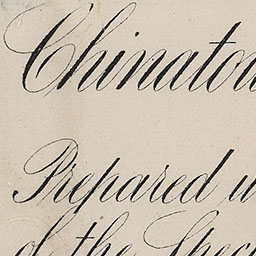 Chinatow
Prepared u
of the Spec